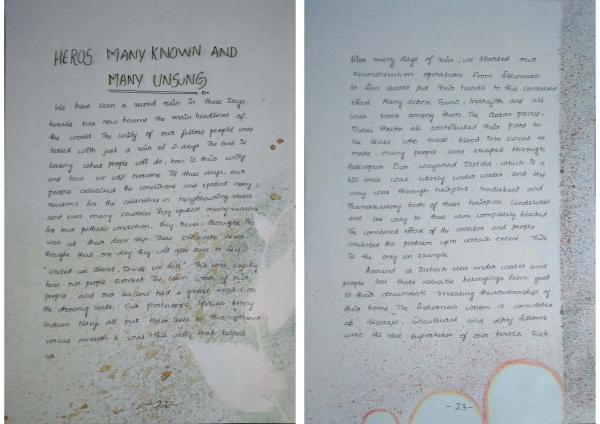 HEROS MANY KNOWN AND
MANY UNSUNG
We have seen a record rain in these Days.
Kerala has now become the main headlines of
the world. The unity of our fellow people was
tested with just a rain of 2-days. The God is
testing what people will do, how is their unity
and how we will overcome. Till these days, our
people criticized the conditions and spotted many
reasons for the calamities in neighbouring states
and even many countries They spotted many reasons
for our pathetic condition, they never thought
was at their door step. These never
thought that one day they will also have to face.
"United we stand, Divide we fall". This was exactly
how our people worked. The team work of our
people and our leaders had a great impact on
the drowning state. Our protectors Indian Army
Indian Navy all put their lives to this
rescue mission. It was this unity that helped
us
-22-
After many days of rain, we started our
reconstruction operations. From fisherman
to film actors put their hands to this combined
effort. Many actors Tovino, Indrajith and all
was some among them. The Qatar prince
Dubai Sheikh all contributed their part to
the state who made blood into sweat to
make many people were escaped through
helicopter. Our wayanad District which is a
hill area was utterly under water, and the
way was through hairpins. Kuttiadi and
Thamarassery both of these hairpins landslided
and the way to these was completely blocked
The combined effort of the collector and people
inhibited the problem upto certain extent. This
is the only an example.
Around 12 Districts were under water and
people lost their valuable belongings from gold
to their documents revealing the ownership of
their home. The fisherman whom is considered
as illiterate, uncultural and dirty fellows
were the real superheroes of our Kerala. Such
-23-